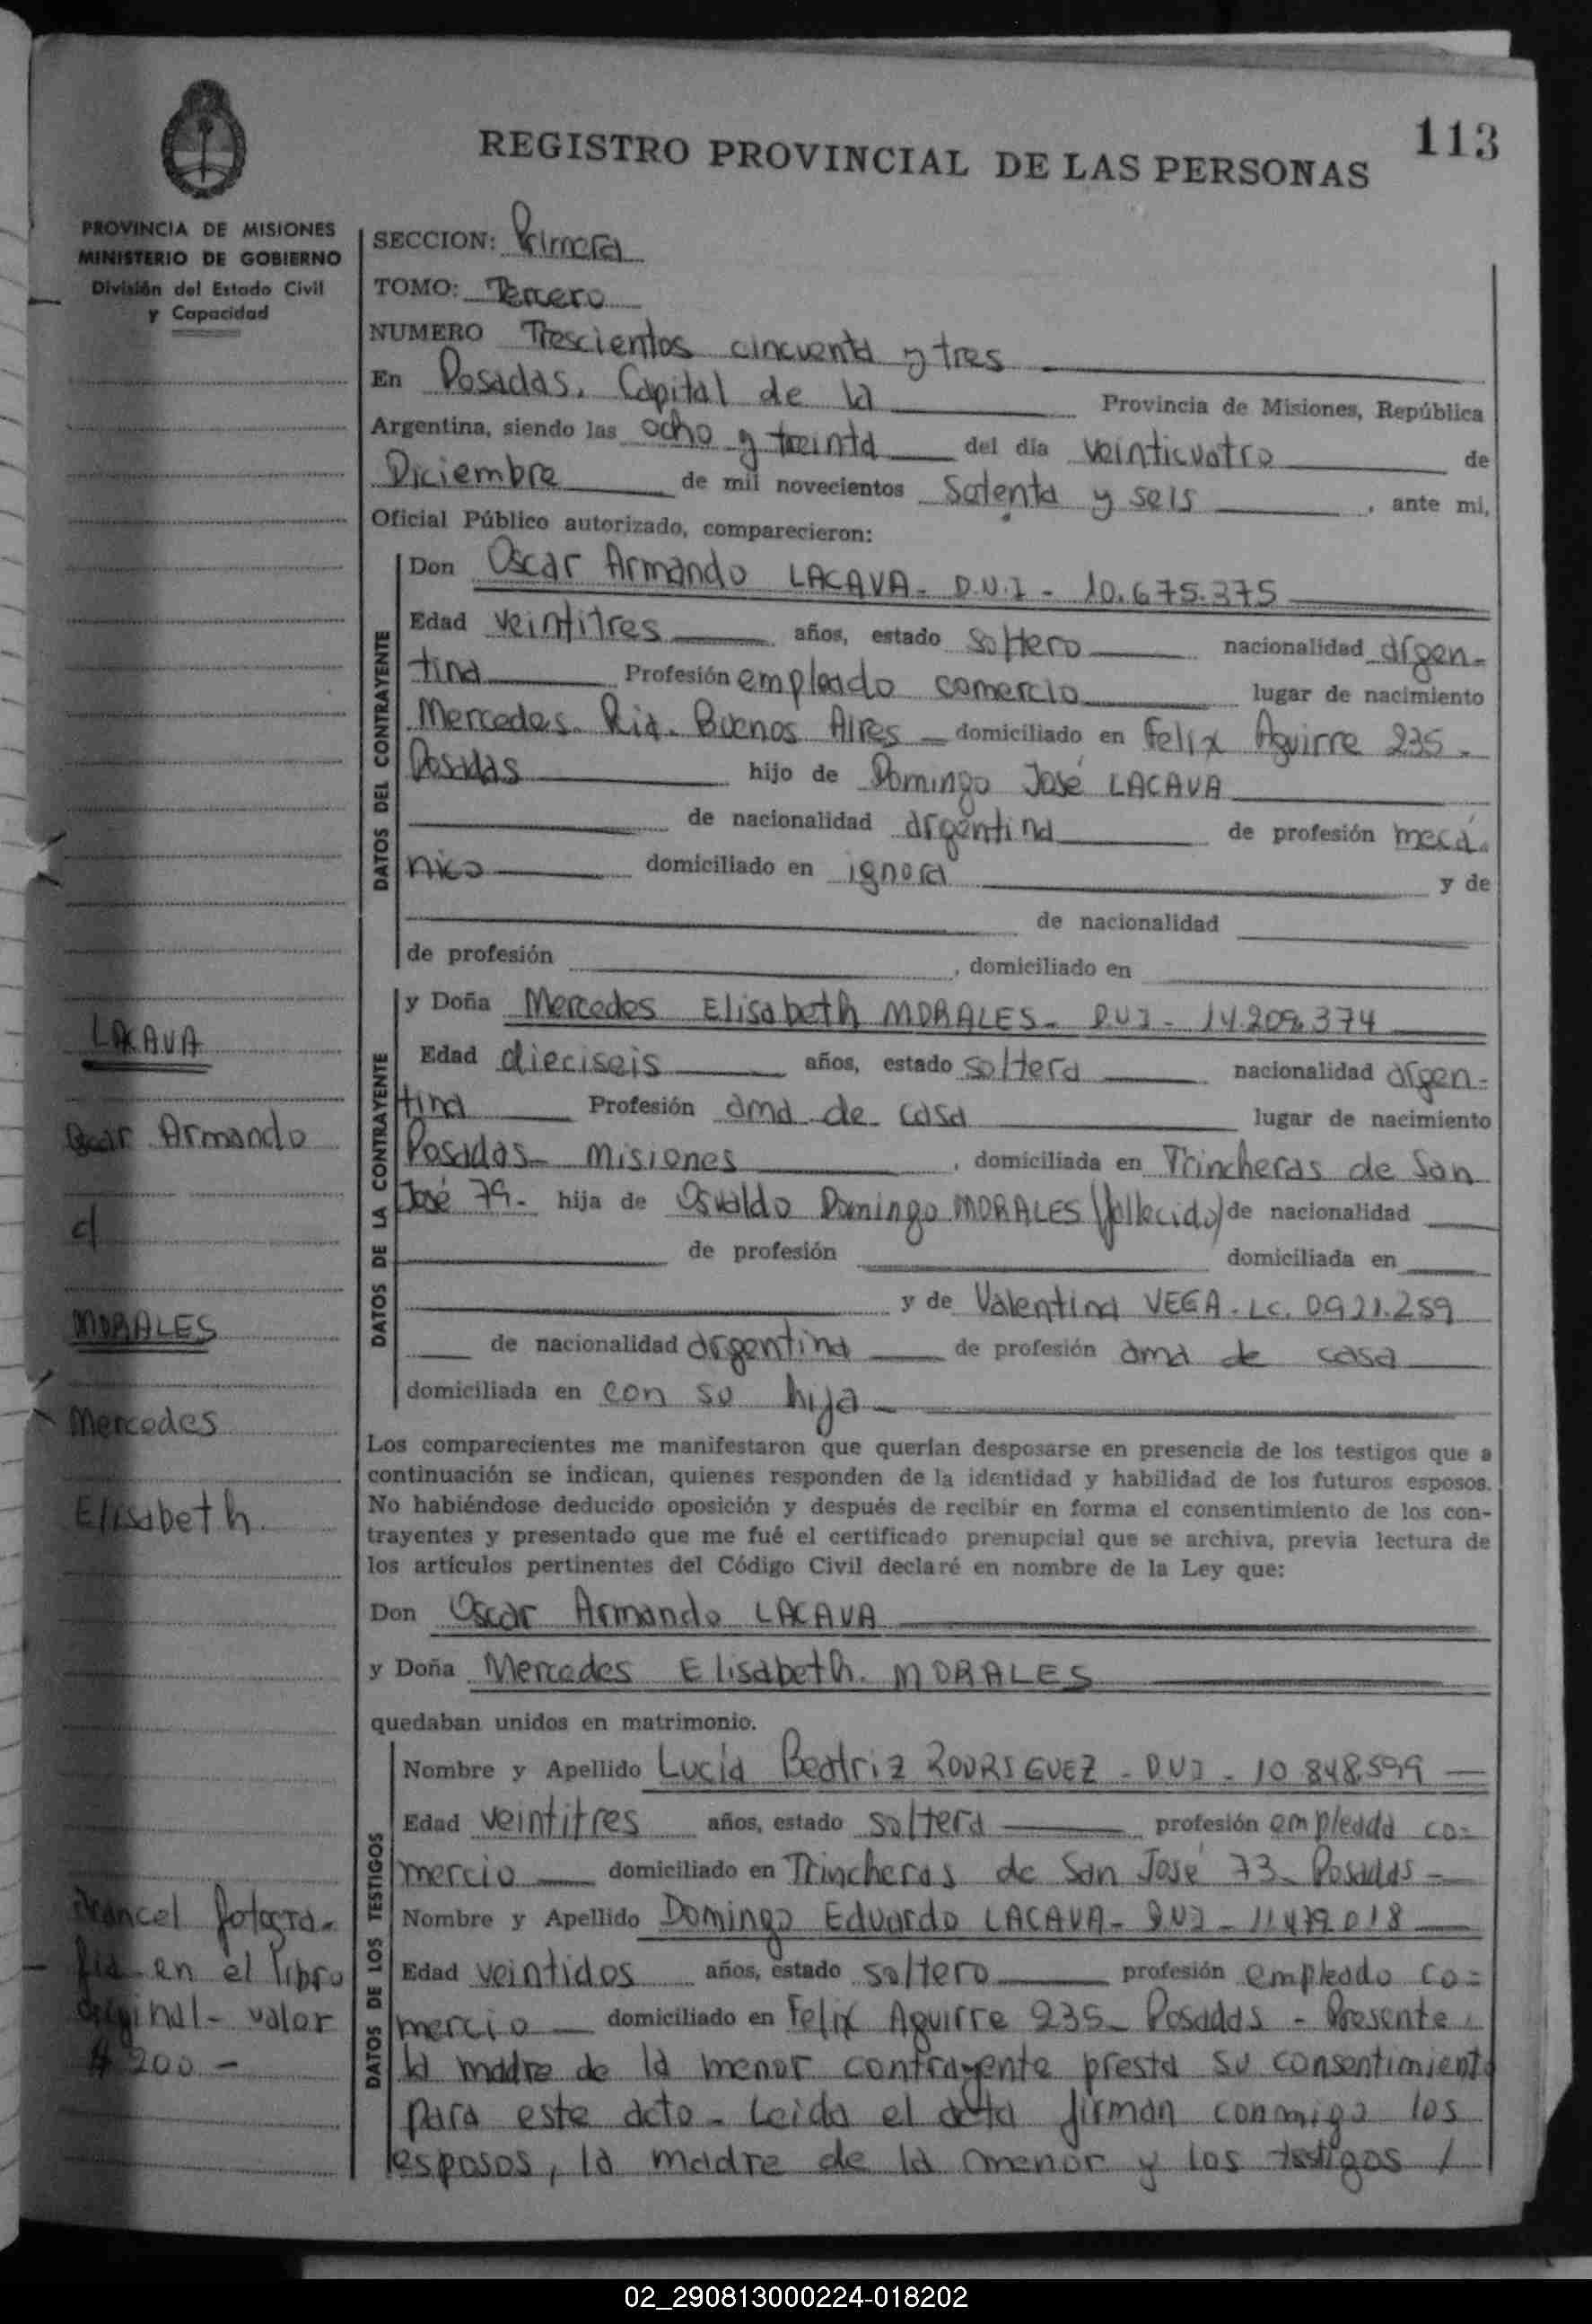 113
REGISTRO PROVINCIAL DE LAS PERSONAS
PROVINCIA DE MISIONES
MINISTERIO DE GOBIERNO
División del Estado Civil
y Capacidad
LACAVA
Oscar Armando
c/
MORALES
Mercedes
Elisabeth.
Arancel fotogra-
fia en el libro
original - valor
$ 200 -
SECCION: Primera
TOMO: Tercero
NUMERO Trescientos cincuenta y tres
En Posadas, Capital de la Provincia de Misiones, República
Argentina, siendo las ocho y treinta del día veinticuatro de
Diciembre de mil novecientos Setenta y seis, ante mi,
Oficial Público autorizado, comparecieron:
DATOS DEL CONTRAYENTE
Don Oscar Armando LACAVA - D.N.I - 10.675.375
Edad veintitres años, estado soltero nacionalidad argen-
tina Profesión empleado comercio lugar de nacimiento
Mercedes. Pcia. Buenos Aires - domiciliado en Felix Aguirre 235 -
Posadas hijo de Domingo José LACAVA
de nacionalidad argentina de profesión mecá-
nico domiciliado en ignora y de
de nacionalidad
de profesión , domiciliado en
DATOS DE LA CONTRAYENTE
y Doña Mercedes Elisabeth MORALES - D.N.I - 14.209.374
Edad dieciseis años, estado soltera nacionalidad argen-
tina Profesión ama de casa lugar de nacimiento
Posadas - Misiones , domiciliada en Trincheras de San
José 79 - hija de Osvaldo Domingo MORALES (fallecido) de nacionalidad
de profesión domiciliada en
y de Valentina VEGA - L.C. 0.921.259
de nacionalidad argentina de profesión ama de casa
domiciliada en con su hija -
Los comparecientes me manifestaron que querían desposarse en presencia de los testigos que a
continuación se indican, quienes responden de la identidad y habilidad de los futuros esposos.
No habiéndose deducido oposición y después de recibir en forma el consentimiento de los con-
trayentes y presentado que me fué el certificado prenupcial que se archiva, previa lectura de
los artículos pertinentes del Código Civil declaré en nombre de la Ley que:
Don Oscar Armando LACAVA
y Doña Mercedes Elisabeth. MORALES
quedaban unidos en matrimonio.
DATOS DE LOS TESTIGOS
Nombre y Apellido Lucía Beatriz RODRIGUEZ - DNI - 10.848.599
Edad veintitres años, estado soltera profesión empleada co-
mercio domiciliado en Trincheras de San José 73 - Posadas -
Nombre y Apellido Domingo Eduardo LACAVA - D.N.I - 11.479.018
Edad veintidos años, estado soltero profesión empleado co-
mercio domiciliado en Felix Aguirre 235 - Posadas - Presente
la madre de la menor contrayente presta su consentimiento
para este acto - Leida el acta firman conmigo los
esposos, la madre de la menor y los testigos /
02_290813000224-018202